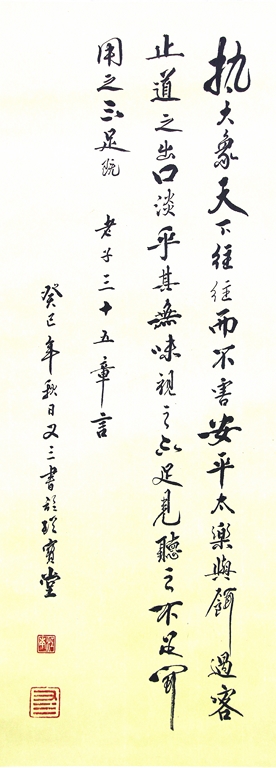 執大象天下往往而不害安平太樂與餌過客
止道之出口淡乎其無味視之不足見聽之不足聞
用之不足既 老子三十五章言
癸巳年秋日又三書於聚寶堂